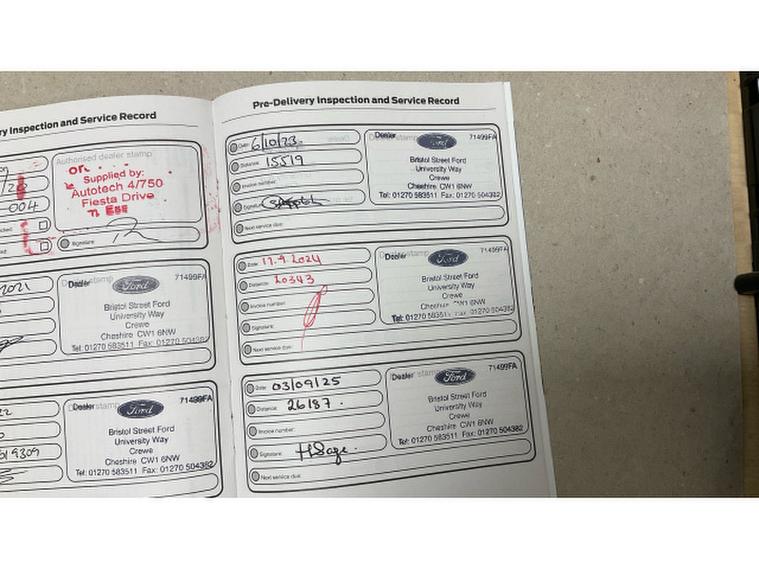 ry Inspection and Service Record
Authorised dealer stamp
Supplied by:
Autotech 4/750
Fiesta Drive
004
Signature:
2021
Dealer stamp
Ford
71499FA
Bristol Street Ford
University Way
Crewe
Cheshire CW1 6NW
Tel: 01270 583511 Fax: 01270 504382
22
Dealer stamp
Ford
71499FA
Bristol Street Ford
University Way
Crewe
Cheshire CW1 6NW
Tel: 01270 583511 Fax: 01270 504382
19309
Pre-Delivery Inspection and Service Record
Date: 6/10/23
Distance: 15519
Invoice number:
Signature:
Next service due:
Dealer stamp
Ford
71499FA
Bristol Street Ford
University Way
Crewe
Cheshire CW1 6NW
Tel: 01270 583511 Fax: 01270 504382
Date: 17.9.2024
Distance: 20343
Invoice number:
Signature:
Next service due:
Dealer stamp
Ford
71499FA
Bristol Street Ford
University Way
Crewe
Cheshire CW1 6NW
Tel: 01270 583511 Fax: 01270 504382
Date: 03/09/25
Distance: 26187.
Invoice number:
Signature: HSage.
Next service due:
Dealer stamp
Ford
71499FA
Bristol Street Ford
University Way
Crewe
Cheshire CW1 6NW
Tel: 01270 583511 Fax: 01270 504382